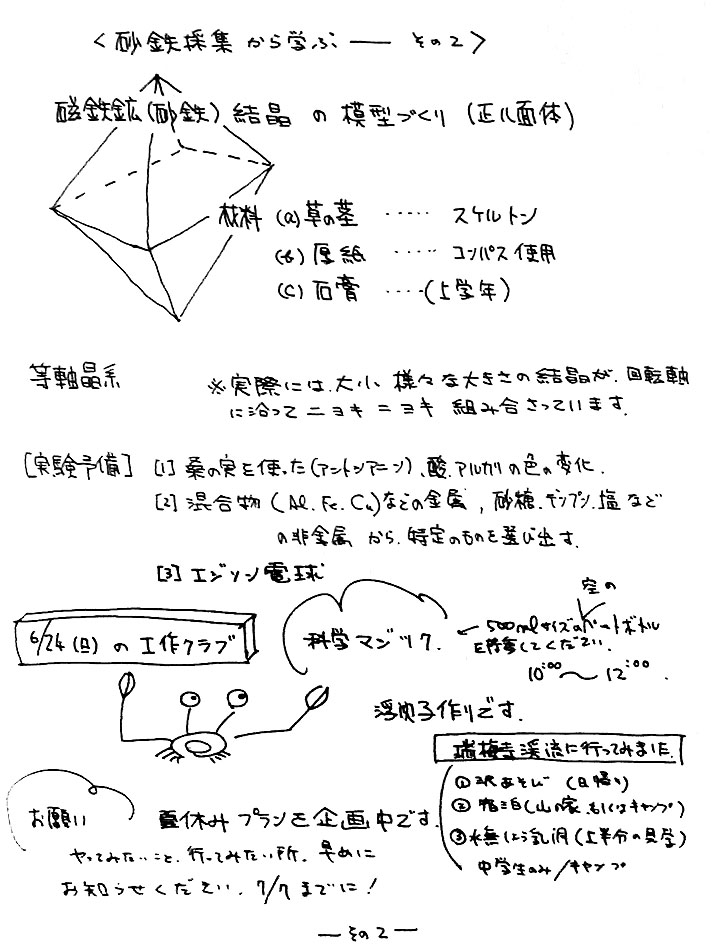 <砂鉄採集から学ぶ ── その2>
磁鉄鉱(砂鉄)結晶の模型づくり(正八面体)
材料 (a)草の茎 ‥‥‥ スケルトン
(b)厚紙 ‥‥‥ コンパス使用
(c)石膏 ‥‥‥(上学年)
等軸晶系
※実際には、大小、様々な大きさの結晶が、回転軸
に沿ってニョキニョキ組み合さっています。
[実験予備] [1]桑の実を使った(アントシアニン)、酸、アルカリの色の変化.
[2]混合物(Al.Fe.Cu)などの金属、砂糖、デンプン、塩など
の非金属から、特定のものを選び出す。
[3]エジソン電球
6/24(日)の工作クラブ
科学マジック.
空の
←500mlサイズのペットボトル
を持参してください.
10:00〜12:00.
浮沈子作りです.
瑞梅寺渓流に行ってみました.
①沢あそび(日帰り)
②宿泊(山の家、もしくはキャンプ)
③水無しょう乳洞(上半分の見学)
中学生のみ/キャンプ
お願い
夏休みプランを企画中です.
やってみたいこと、行ってみたい所、早めに
お知らせください. 7/7までに!
─その2─